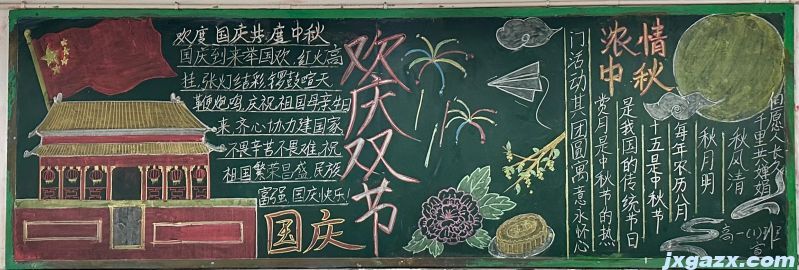 欢度国庆共度中秋
国庆到来举国欢,红火高
挂,张灯结彩锣鼓喧天
鞭炮鸣,庆祝祖国母亲生日
来,齐心协力建国家
不畏辛苦不畏难,祝
祖国繁荣昌盛,民族
富强,国庆快乐!
国庆
欢庆双节
浓情
中秋
但愿人长久
千里共婵娟
秋风清
秋月明
每年农历八月
十五是中秋节
是我国的传统节日
赏月是中秋节的热
门活动其团圆寓意永怀心
高一(1)班
宣
jxgazx.com